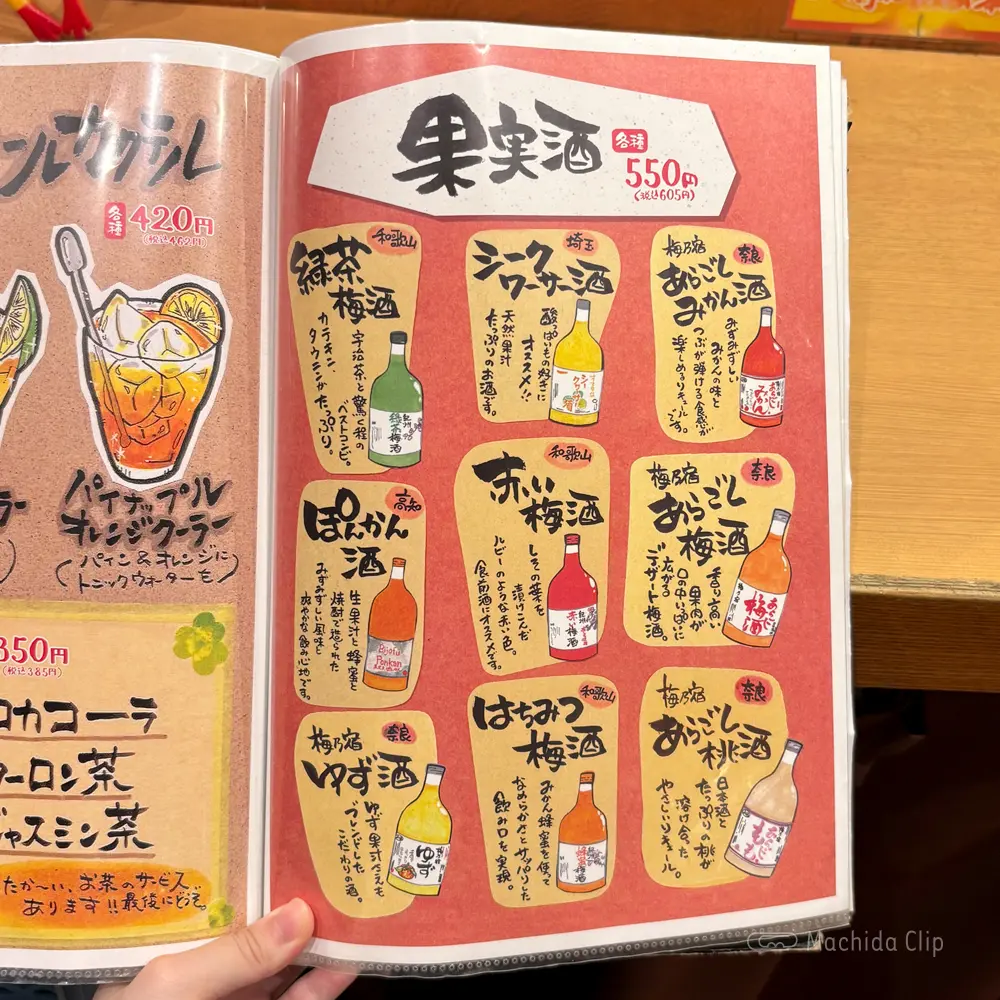 ンルカクテル
各種
420円
(税込462円)
パイナップル
オレンジクーラー
パイン&オレンジに
トニックウォーターを
350円
(税込385円)
コカコーラ
ーロン茶
ャスミン茶
たか〜い、お茶のサービス
あります!!最後にどうぞ。
果実酒
各種
550円
(税込605円)
和歌山
緑茶
梅酒
宇治茶と驚く程の
ベストコンビ。
カテキン、
タウリンがたっぷり。
緑茶梅酒
埼玉
シークワーサー酒
酸っぱいもの好きに
オススメ!!
天然果汁
たっぷりのお酒です。
奈良
梅乃宿
あらごし
みかん酒
みずみずしい
みかんの味と
つぶが弾ける食感が
楽しめるリキュールです。
みかん
高知
ぽんかん
酒
生果汁と蜂蜜と
焼酎で造られた
みずみずしい風味と
爽やかな飲み心地です。
Ponkan
和歌山
赤い
梅酒
しその葉を
漬けこんだ
ルビーのような赤い色。
食前酒にオススメです。
赤い梅酒
奈良
梅乃宿
あらごし
梅酒
香り高い
果肉が
口の中いっぱいに
広がる
デザート梅酒。
梅酒
奈良
梅乃宿
ゆず酒
ゆず果汁を
ブレンドした
こだわりの酒。
ゆず
和歌山
はちみつ
梅酒
みかん蜂蜜を使って
なめらかさとサッパリした
飲み口を実現。
蜂蜜梅酒
奈良
梅乃宿
あらごし
桃酒
日本酒と
たっぷりの桃が
溶け合った
やさしいリキュール。
もも
Machida Clip